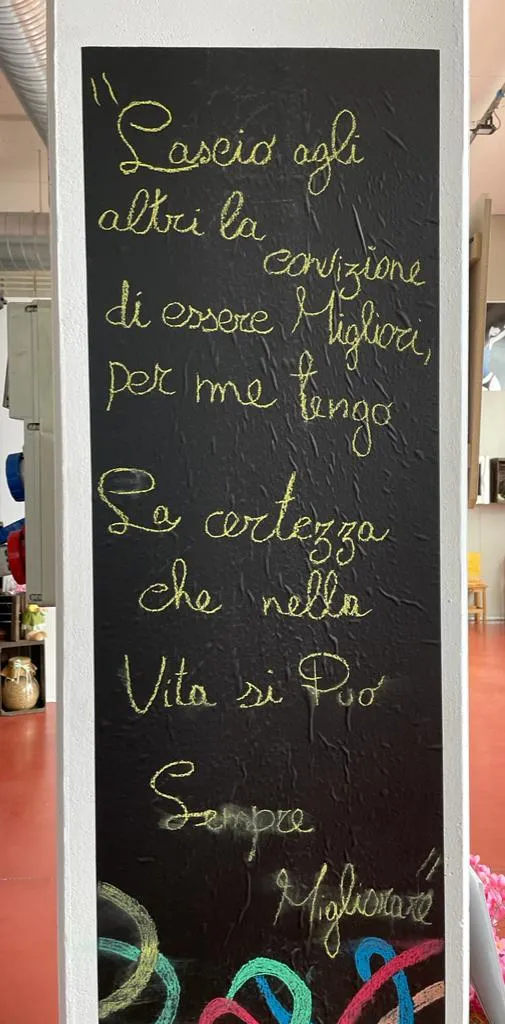 "Lascio agli
altri la
convizione
di essere Migliori,
per me tengo
La certezza
che nella
Vita si Può
Sempre
Migliorare"